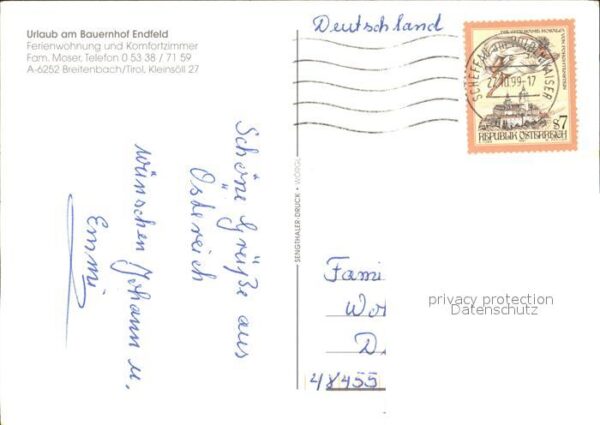 Urlaub am Bauernhof Endfeld
Ferienwohnung und Komfortzimmer
Fam. Moser, Telefon 0 53 38 / 71 59
A-6252 Breitenbach/Tirol, Kleinsöll 27
Deutschland
22.10.99-17
s7
REPUBLIK ÖSTERREICH
Schöne Grüße aus
Östereich
wünschen Johann u.
Emmi
SENGTHALER-DRUCK • WÖRGL
Fami
Wo
D
48455
privacy protection
Datenschutz